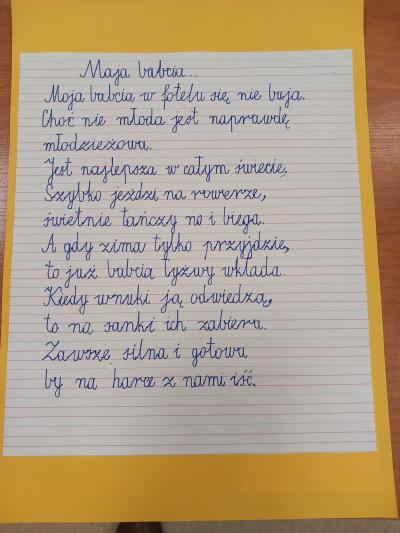 Maja babcia...
Moja babcia w fotelu się nie buja.
Choć nie młoda jest naprawdę
młodzieżowa.
Jest najlepsza w całym świecie,
Szybko jeździ na rowerze,
świetnie tańczy no i biega.
A gdy zima tylko przyjdzie,
to już babcia łyżwy wkłada.
Kiedy wnuki ją odwiedzą,
to na sanki ich zabiera.
Zawsze silna i gotowa
by na harce z nami iść.